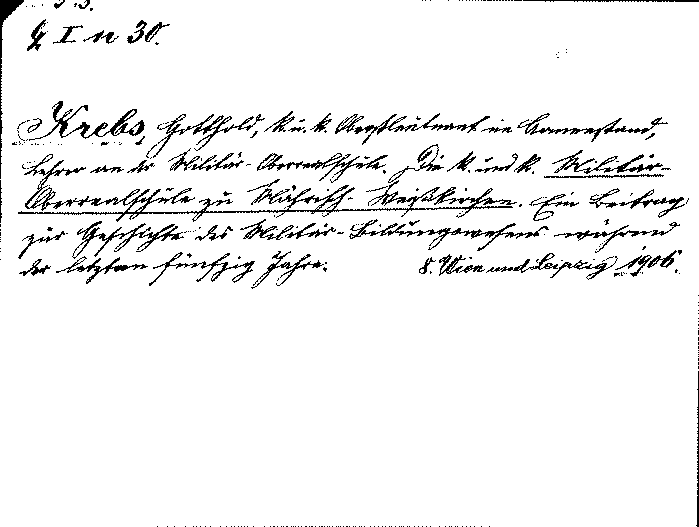 I n 30.
Krebs, Gotthold, k. u. k. Oberstleutnant im Armeestand,
Lehrer an der Militär-Oberrealschule. Die k. und k. Militär-
Oberrealschule zu Mährisch-Weißkirchen. Ein Beitrag
zur Geschichte des Militär-Bildungswesens während
der letzten fünfzig Jahre. 8. Wien und Leipzig 1906.